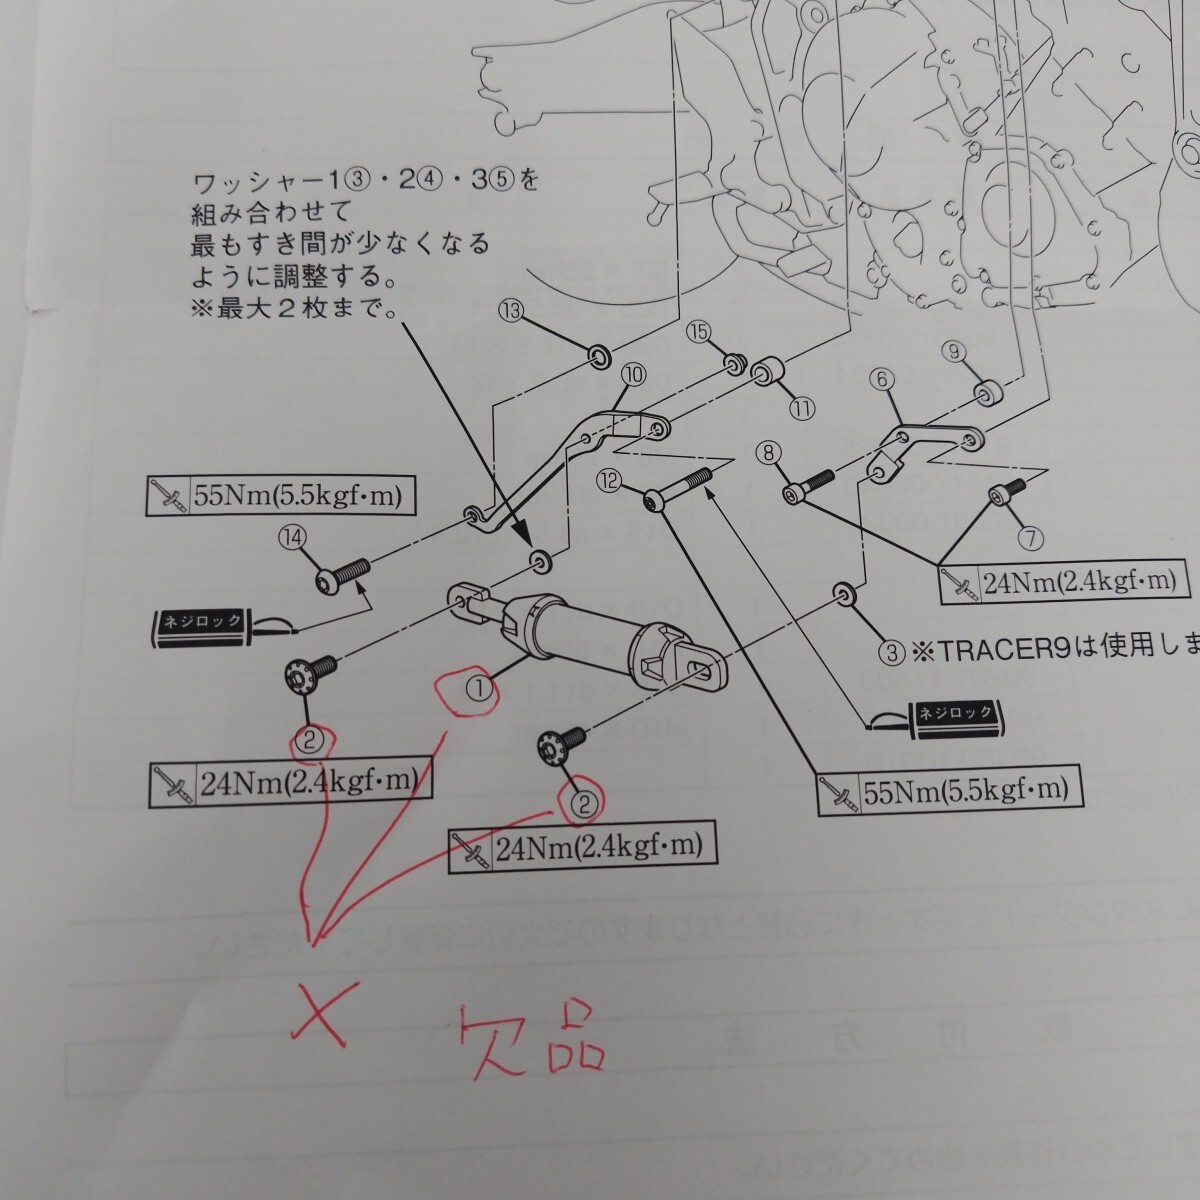 ワッシャー1③・2④・3⑤を
組み合わせて
最もすき間が少なくなる
ように調整する。
※最大2枚まで。
⑬
⑮
⑨
⑩
⑥
⑪
⑧
⑫
55Nm(5.5kgf･m)
⑭
⑦
24Nm(2.4kgf･m)
ネジロック
③※TRACER9は使用しま
①
ネジロック
②
24Nm(2.4kgf･m)
②
55Nm(5.5kgf･m)
24Nm(2.4kgf･m)
× 欠品